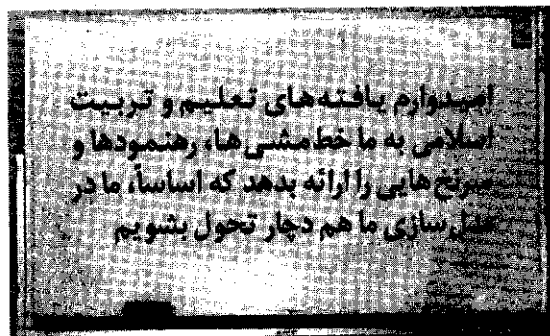 امیدوارم یافته‌های تعلیم و تربیت
اسلامی به ما خط‌مشی‌ها، رهنمودها و
سرنخ‌هایی را ارائه بدهد که اساساً، ما در
مدل‌سازی ما هم دچار تحول بشویم